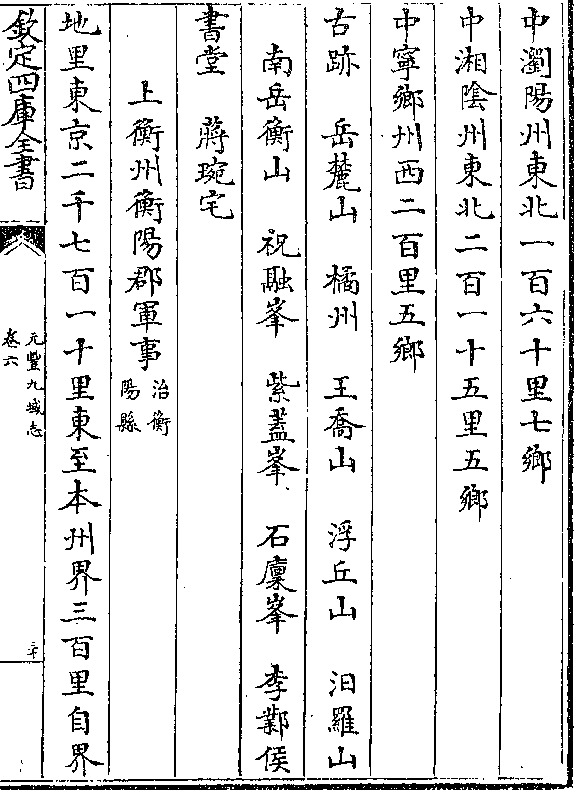 中瀏陽州東北一百六十里七鄉
中湘陰州東北二百一十五里五鄉
中寧鄉州西二百里五鄉
古跡　岳麓山　橘州　王喬山　浮丘山　汨羅山
南岳衡山　祝融峯　紫蓋峯　石廩峯　李鄴侯
書堂　蔣琬宅
上衡州衡陽郡軍事治衡陽縣
地里東京二千七百一十里東至本州界三百里自界
欽定四庫全書
元豐九域志
卷六
三十